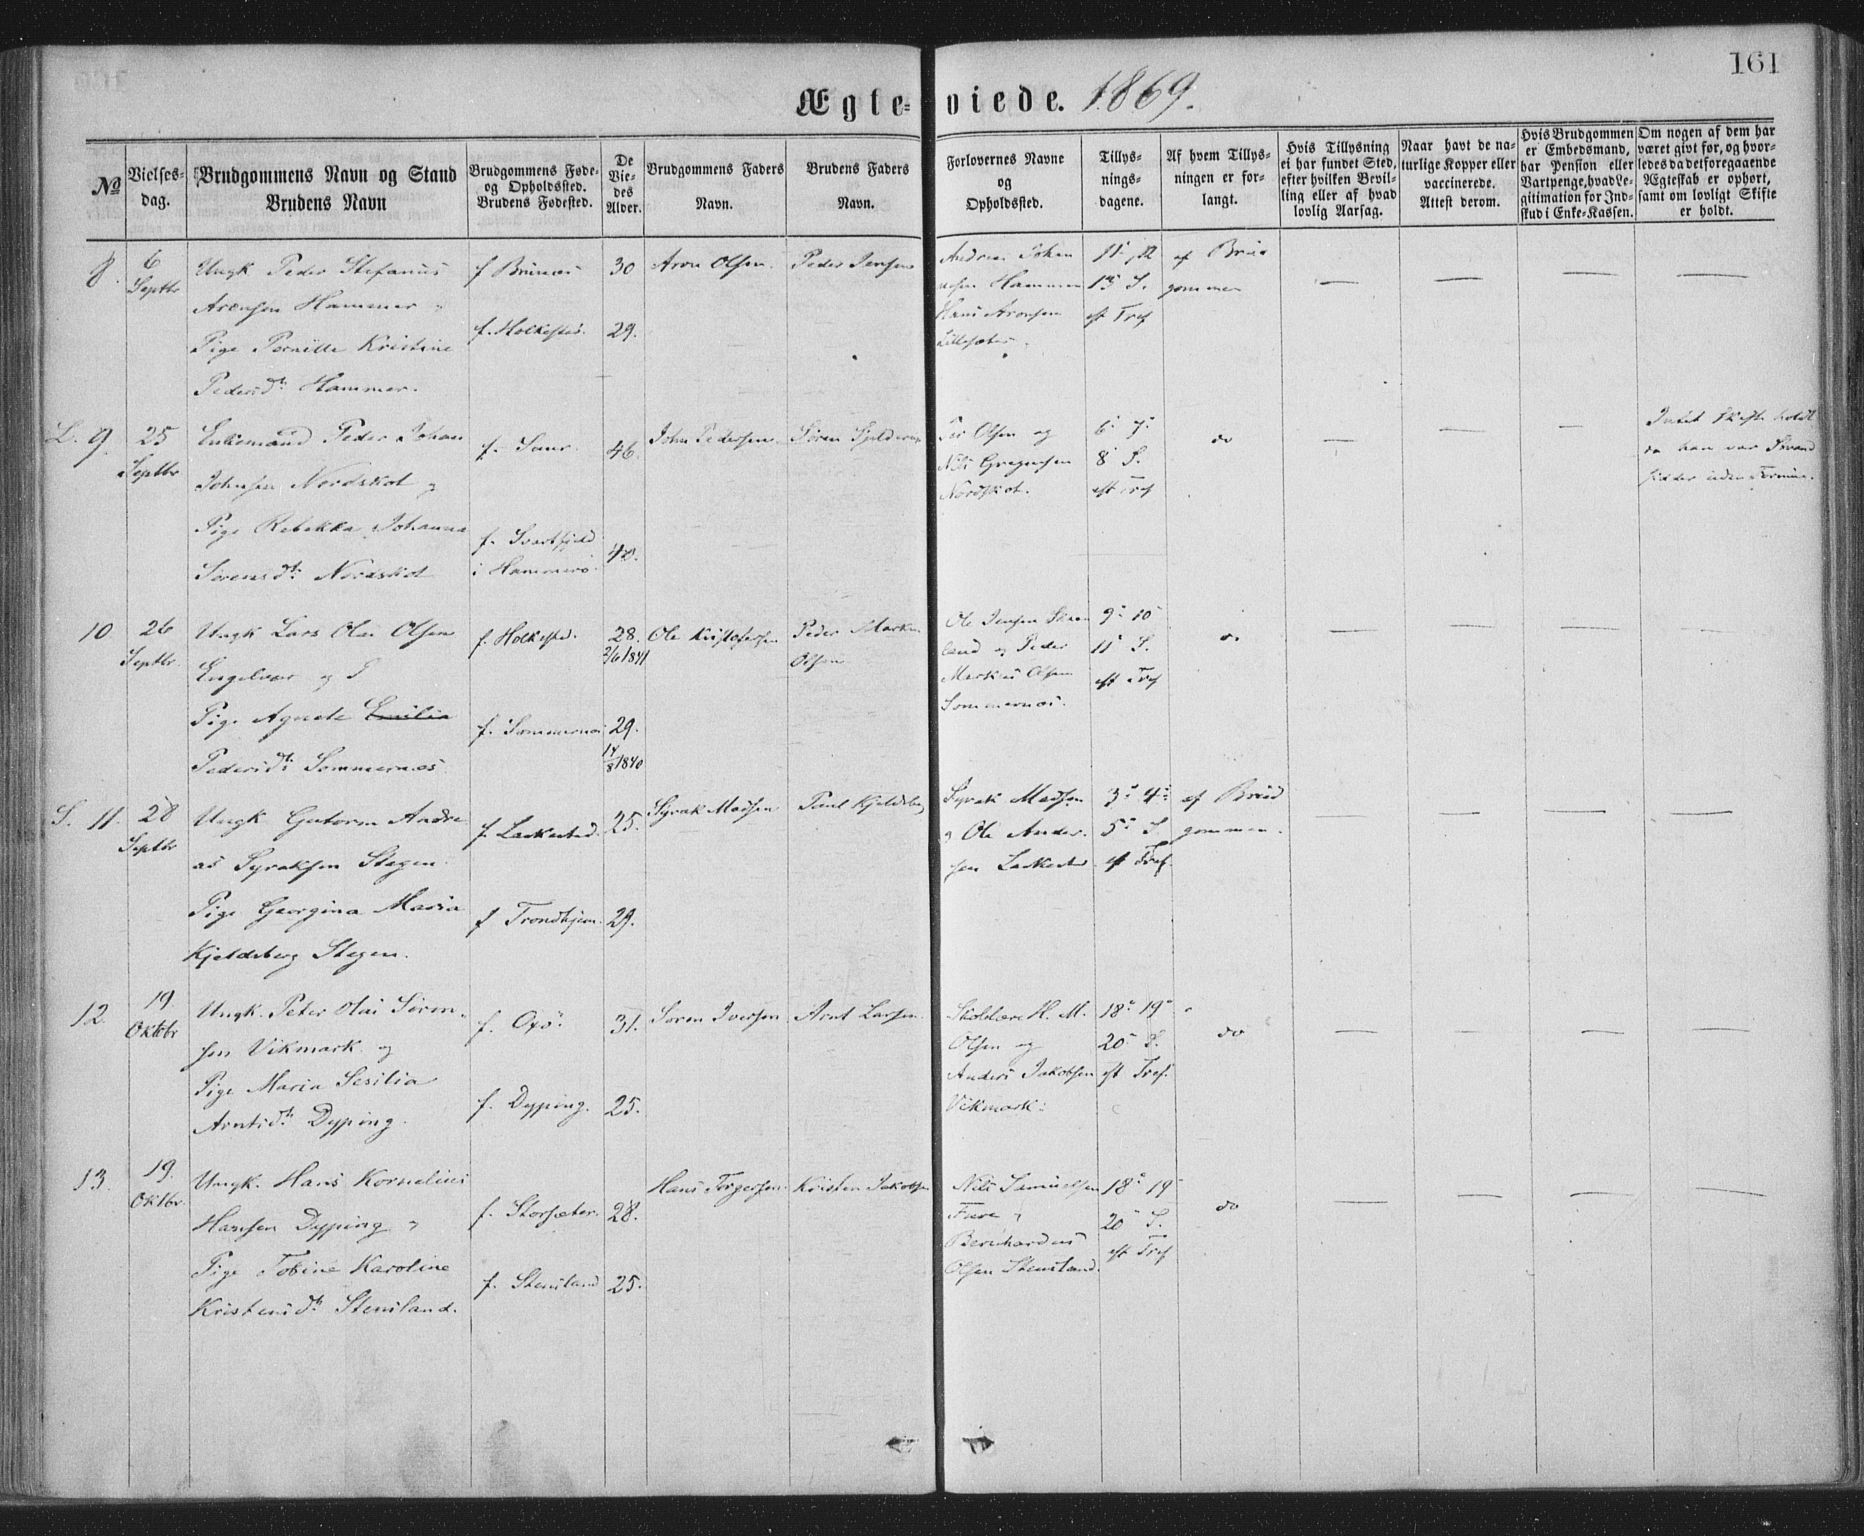 161
Ægte-viede. 1869.
No
Vielses-
dag.
Brudgommens Navn og Stand
Brudens Navn
Brudgommens Føde-
og Opholdssted.
Brudens Fødested.
De
Vie-
des
Alder.
Brudgommens Faders
Navn.
Brudens Faders
Navn.
Forlovernes Navne
og
Opholdssted.
Tillys-
nings-
dagene.
Af hvem Tillys-
ningen er for-
langt.
Hvis Tillysning
ei har fundet Sted,
efter hvilken Bevil-
ling eller af hvad
lovlig Aarsag.
Naar havt de na-
turlige Kopper eller
vaccinerede.
Attest derom.
Hvis Brudgommen
er Embedsmand,
har Pension eller
Vartpenge, hvad Le-
gitimation for Ind-
skud i Enke-Kassen.
Om nogen af dem har
været givt før, og hvor-
ledes da det foregaaende
Ægteskab er ophørt,
samt om lovligt Skifte
er holdt.
8.
6
Septbr
Ungk Peder Stefanus
Arensen Hammer
Pige Pernille Kristine
Pedersdtr Hammer.
f Brunæs
f. Holkestad.
30
29.
Aron Olsen.
Peder Jensen
Andreas Johan
nesen Hammer
Hans Aronsen
Lillesæter.
11, 12
13 S.
eft Tref
af Brud
gommen
L. 9.
25
Septbr
Enkemand Peder Johan
Johnsen Nordskot og
Pige Rebekka Johanna
Sørensdtr Nordskot
f.
f. Svartfjeld
i Hammerø.
46.
40.
John Pedersen
Søren Tjeldnes
Per Olsen og
Nils Gregersen
Nordskot.
6 7
8 S.
eft Tref
do
Intet Skifte holdt
da han var Strand
sidder uden Formue.
10
26
Septbr
Ungk Lars Olai Olsen
Engelvær og
Pige Agnete Emilia
Pedersdtr Sommernæs
f. Holkestad.
f. Sommernæs
28.
2/6 1841
29.
14/8 1840
Ole Kristofersen
Peder Markus
Olsen
Ole Jensen Skaan
land og Peder
Markus Olsen
Sommernæs.
9 10
11 S.
eft Tref
do
S. 11.
28
Septbr
Ungk Gutorm Andre
as Syraksen Stegen.
Pige Georgina Maria
Kjeldsberg Stegen.
f. Laskestad.
f Trondhjem.
25.
29.
Syrak Madsen
Paul Kjeldsberg
Syrak Madsen
og Ole Ander-
sen Laskestad
3 4
5 S.
eft Tref.
af Brud
gommen.
12.
19
Oktobr
Ungk. Peter Olai Søren-
sen Vikmark og
Pige Maria Sesilia
Arntsdtr Dypping.
f. Oxø.
f. Dypping.
31.
25.
Søren Iversen
Arnt Larsen
Skolelærer H. M.
Olsen og
Anders Jakobsen
Vikmark.
18 19
20 S.
eft Tref.
do
13.
19.
Oktbr.
Ungk. Hans Kornelius
Hansen Dypping
Pige Tobine Karoline
Kristensdtr Stensland.
f. Storsæter.
f. Stensland
28.
25.
Hans Torgersen
Kristen Jakobsen
Nils Samuelsen
Fure
Bernhardus
Olsen Stensland.
18 19
20 S.
eft Tref
do